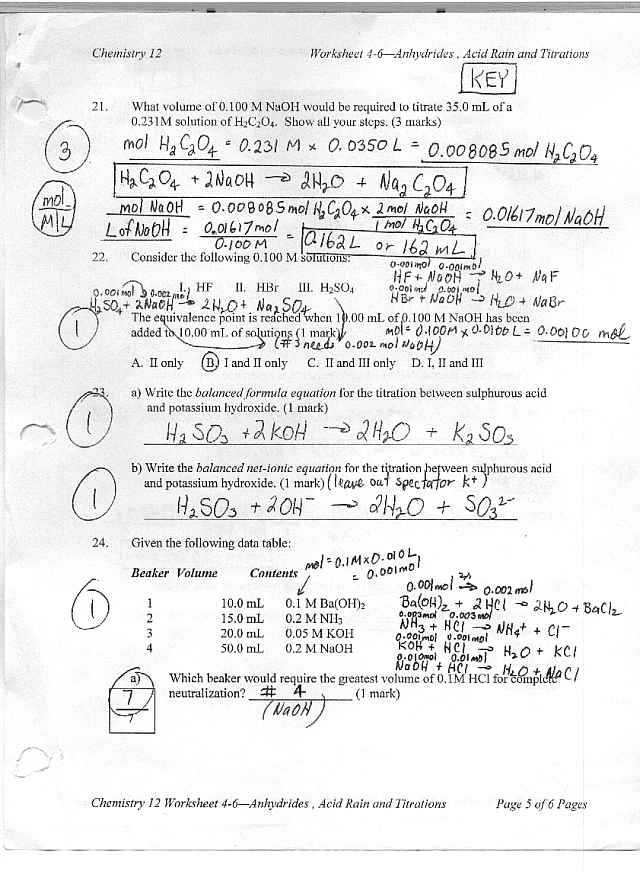 Chemistry 12 Worksheet 4-6—Anhydrides , Acid Rain and Titrations
KEY
21. What volume of 0.100 M NaOH would be required to titrate 35.0 mL of a
0.231M solution of H₂C₂O₄. Show all your steps. (3 marks)
3
mol H₂C₂O₄ = 0.231 M × 0.0350 L = 0.008085 mol H₂C₂O₄
H₂C₂O₄ + 2NaOH → 2H₂O + Na₂C₂O₄
mol
M L
mol NaOH = 0.008085 mol H₂C₂O₄ × 2 mol NaOH / 1 mol H₂C₂O₄ = 0.01617 mol NaOH
L of NaOH = 0.01617 mol / 0.100 M = 0.162 L or 162 mL
22. Consider the following 0.100 M solutions:
0.001 mol 0.001 mol
HF + NaOH → H₂O + NaF
I. HF II. HBr III. H₂SO₄
0.001 mol 0.001 mol
HBr + NaOH → H₂O + NaBr
0.001 mol → 0.002 mol
H₂SO₄ + 2NaOH → 2H₂O + Na₂SO₄
1
The equivalence point is reached when 10.00 mL of 0.100 M NaOH has been
added to 10.00 mL of solutions (1 mark)
mol = 0.100M × 0.0100 L = 0.00100 mol
(#3 needs 0.002 mol NaOH)
A. II only B. I and II only C. II and III only D. I, II and III
23. a) Write the balanced formula equation for the titration between sulphurous acid
and potassium hydroxide. (1 mark)
1
H₂SO₃ + 2KOH → 2H₂O + K₂SO₃
b) Write the balanced net-ionic equation for the titration between sulphurous acid
and potassium hydroxide. (1 mark) (leave out spectator K⁺)
1
H₂SO₃ + 2OH⁻ → 2H₂O + SO₃²⁻
24. Given the following data table:
mol = 0.1M × 0.010 L
= 0.001 mol
Beaker Volume Contents
0.001 mol ×2→ 0.002 mol
1 10.0 mL 0.1 M Ba(OH)₂
Ba(OH)₂ + 2HCl → 2H₂O + BaCl₂
0.003 mol 0.003 mol
2 15.0 mL 0.2 M NH₃
NH₃ + HCl → NH₄⁺ + Cl⁻
0.001 mol 0.001 mol
3 20.0 mL 0.05 M KOH
KOH + HCl → H₂O + KCl
0.010 mol 0.01 mol
4 50.0 mL 0.2 M NaOH
NaOH + HCl → H₂O + NaCl
1
a) Which beaker would require the greatest volume of 0.1M HCl for complete
neutralization? # 4 (1 mark)
(NaOH)
7
7
Chemistry 12 Worksheet 4-6—Anhydrides , Acid Rain and Titrations Page 5 of 6 Pages